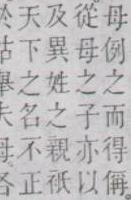 母例之而得偁。
從母之子亦以
及異姓之親祇
天下之名不正
於姑舉夫母各